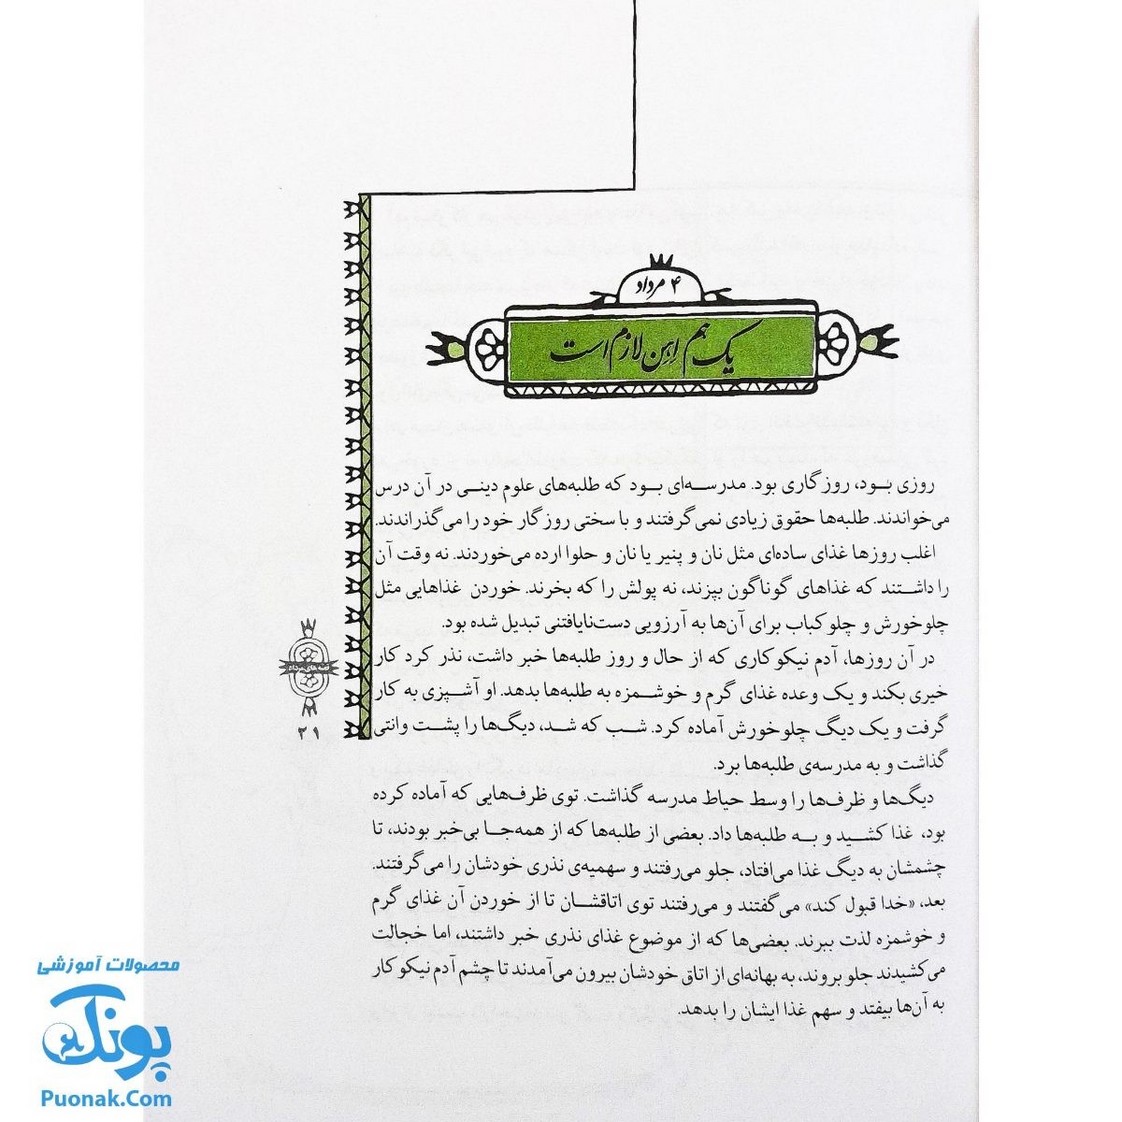 ۴ مرداد
یک هم اِهِن لازم است
روزی بود، روزگاری بود. مدرسه‌ای بود که طلبه‌های علوم دینی در آن درس
می‌خواندند. طلبه‌ها حقوق زیادی نمی‌گرفتند و با سختی روزگار خود را می‌گذراندند.
اغلب روزها غذای ساده‌ای مثل نان و پنیر یا نان و حلوا ارده می‌خوردند. نه وقت آن
را داشتند که غذاهای گوناگون بپزند، نه پولش را که بخرند. خوردن غذاهایی مثل
چلوخورش و چلوکباب برای آن‌ها به آرزویی دست‌نایافتنی تبدیل شده بود.
در آن روزها، آدم نیکوکاری که از حال و روز طلبه‌ها خبر داشت، نذر کرد کار
خیری بکند و یک وعده غذای گرم و خوشمزه به طلبه‌ها بدهد. او آشپزی به کار
گرفت و یک دیگ چلوخورش آماده کرد. شب که شد، دیگ‌ها را پشت وانتی
گذاشت و به مدرسه‌ی طلبه‌ها برد.
دیگ‌ها و ظرف‌ها را وسط حیاط مدرسه گذاشت. توی ظرف‌هایی که آماده کرده
بود، غذا کشید و به طلبه‌ها داد. بعضی از طلبه‌ها که از همه‌جا بی‌خبر بودند، تا
چشمشان به دیگ غذا می‌افتاد، جلو می‌رفتند و سهمیه‌ی نذری خودشان را می‌گرفتند.
بعد، «خدا قبول کند» می‌گفتند و می‌رفتند توی اتاقشان تا از خوردن آن غذای گرم
و خوشمزه لذت ببرند. بعضی‌ها که از موضوع غذای نذری خبر داشتند، اما خجالت
می‌کشیدند جلو بروند، به بهانه‌ای از اتاق خودشان بیرون می‌آمدند تا چشم آدم نیکوکار
به آن‌ها بیفتد و سهم غذا ایشان را بدهد.
۲۱
محصولات آموزشی
پونک
Puonak.Com